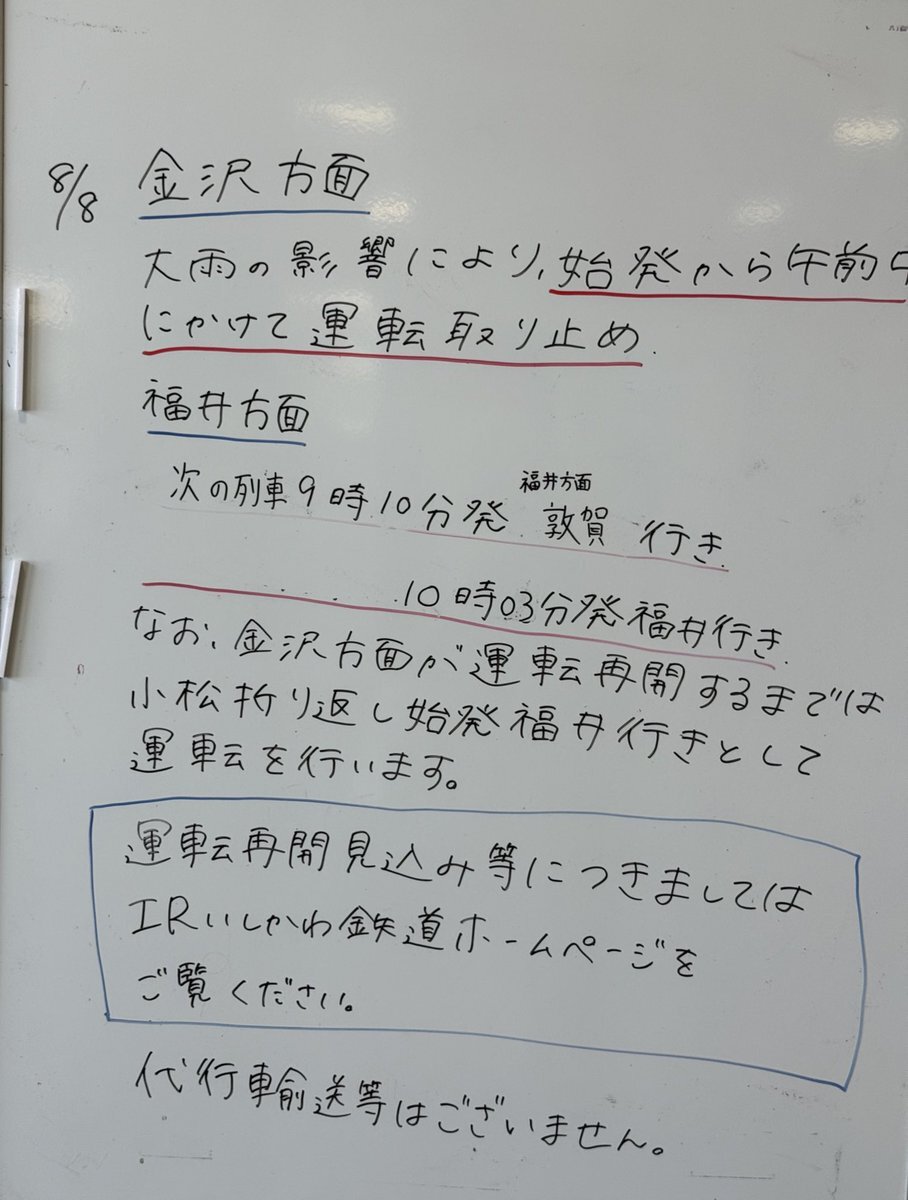 8/8 金沢方面
大雨の影響により、始発から午前
にかけて運転取り止め.
福井方面
次の列車9時10分発 福井方面 敦賀 行き.
10時03分発福井行き.
なお、金沢方面が運転再開するまでは
小松折り返し始発福井行きとして
運転を行います。
運転再開見込み等につきましては
IRいしかわ鉄道ホームページを
ご覧ください。
代行輸送等はございません。